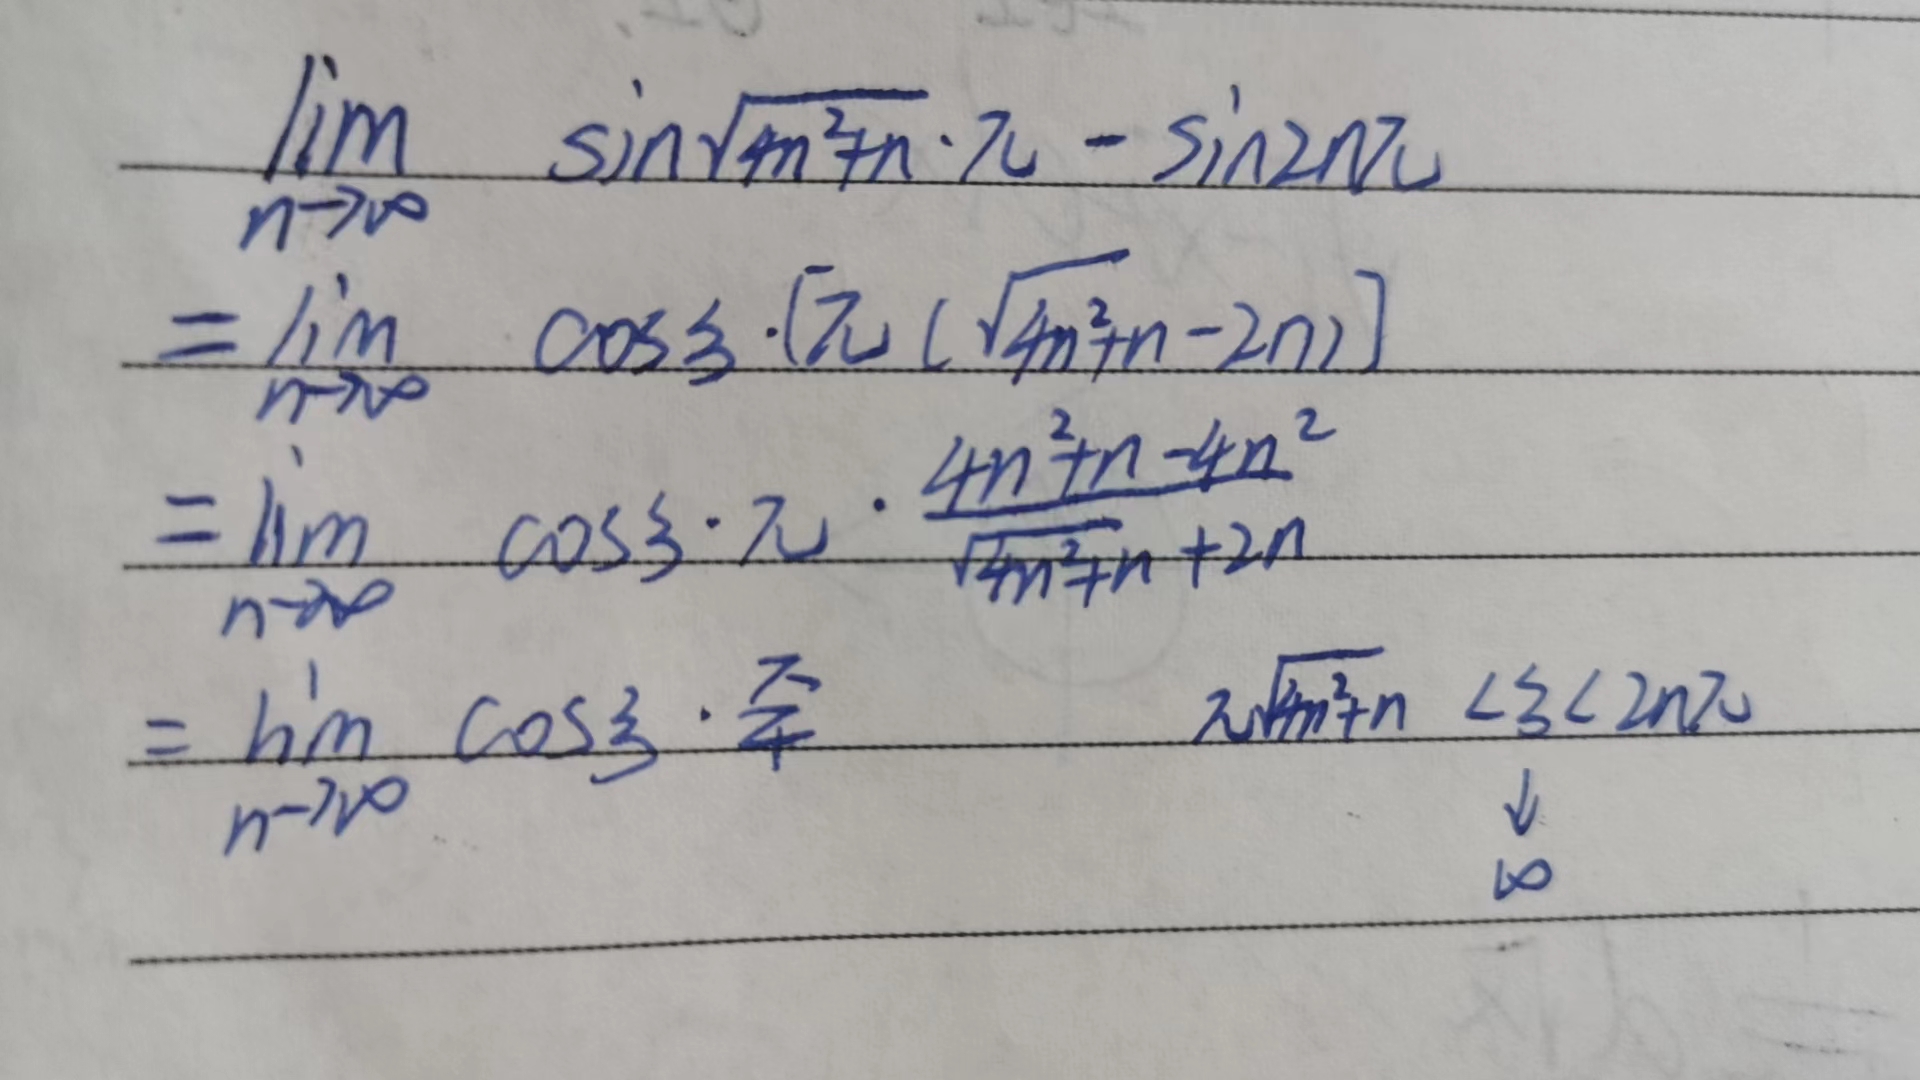 lim n→∞ sin√(4n²+n)·π - sin2nπ
= lim n→∞ cosξ·[π(√(4n²+n)-2n)]
= lim n→∞ cosξ·π·(4n²+n-4n²)/(√(4n²+n)+2n)
= lim n→∞ cosξ·π/4 π√(4n²+n) <ξ< 2nπ
↓
∞